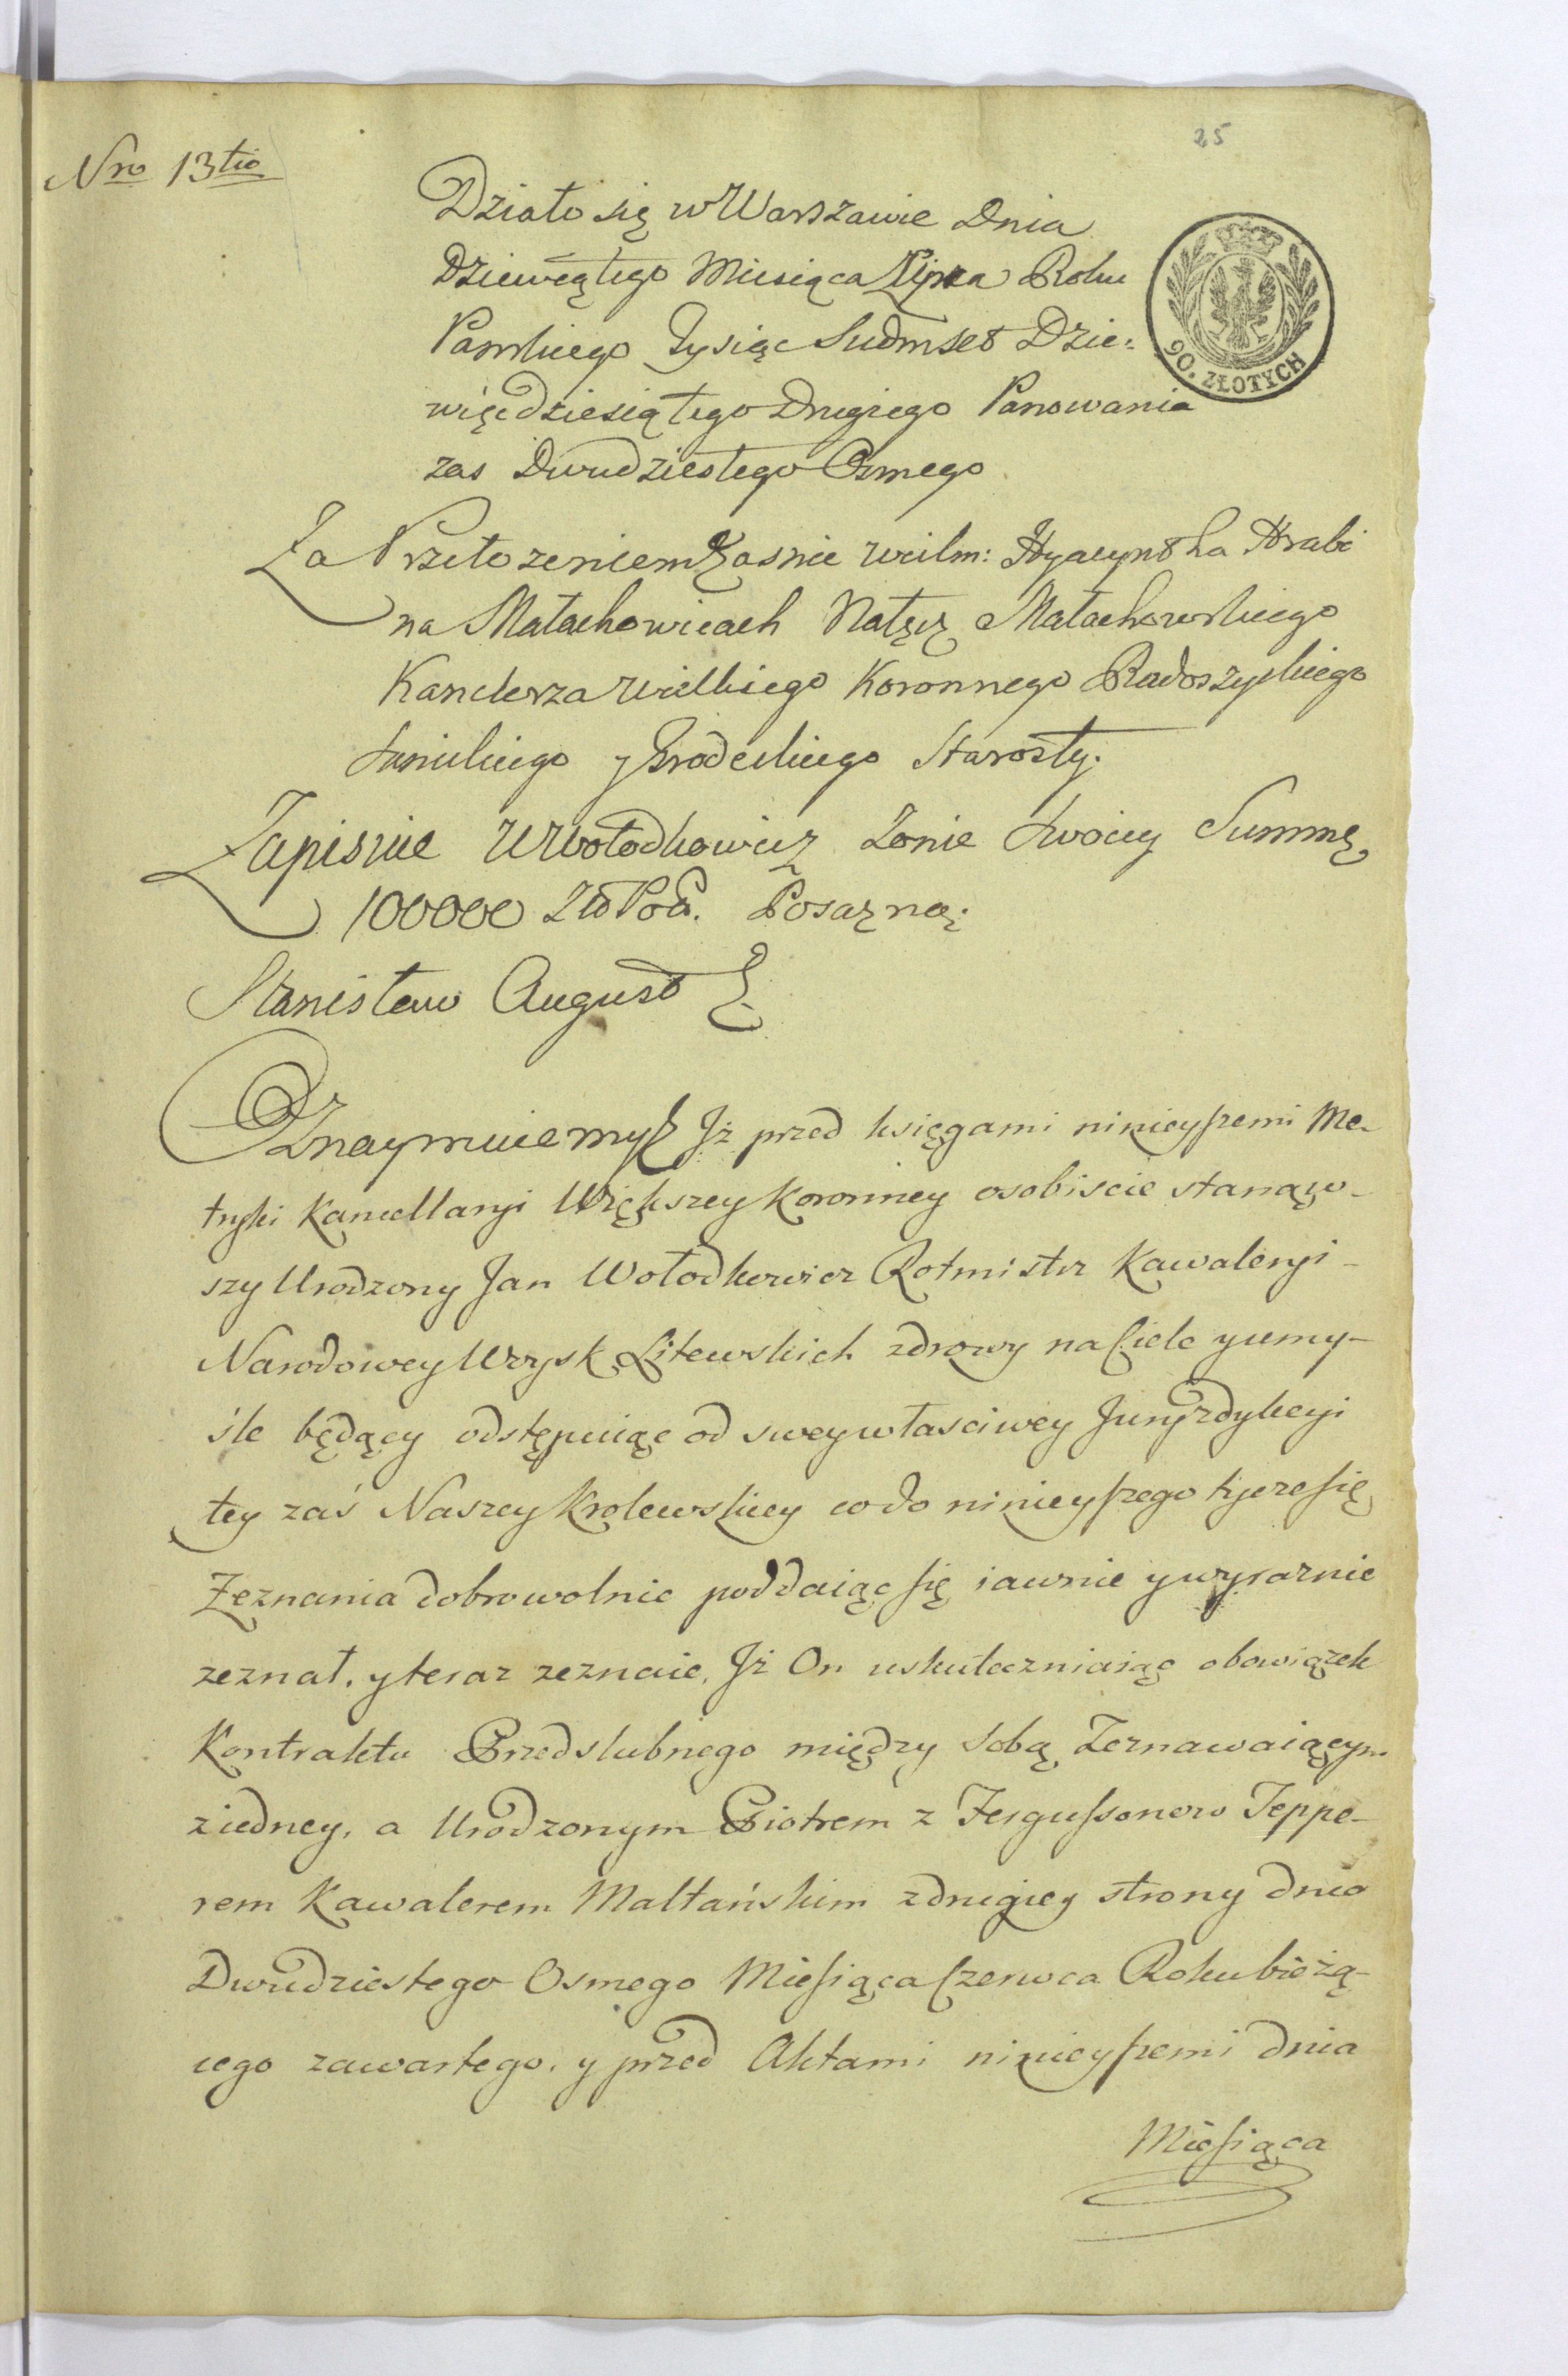 25
Nro 13tio
Działo się w Warszawie Dnia
Dziewiątego Miesiąca Lipca Roku
Pańskiego Tysiąc Siedmset Dzie:
więdziesiątego Drugiego Panowania
zas Dwudziestego Osmego
90. ZŁOTYCH
Za Przełozeniem Jasnie Wielm: Hyacyntha Hrabi
na Małachowicach Nałęcz Małachowskiego
Kanclerza Wielkiego Koronnego Radoszyckiego
Sanickiego y Grodeckiego Starosty.
Zapisuie W Wołodkowicz Zonie Swoiey Summę
100000 Zło Pol. Posazną.
Stanisław August
Oznaymuiemy Jż przed księgami ninieyszemi Me-
tryki Kancellaryi Większey Koronney osobiscie stanąw-
szy Urodzony Jan Wołodkowicz Rotmistrz Kawaleryi -
Narodowey Woysk Litewskich zdrowy na Ciele y umy-
śle będący odstępuiąc od swey własciwey Juryzdykcyi
tey zaś Naszey Krolewskiey co do ninieyszego tycze się
Zeznania dobrowolnie poddaiąc się iawnie y wyraznie
zeznał, y teraz zeznaie, Jż On uskuteczniaiąc obowiązek
Kontraktu Przedslubnego między Sobą Zeznawaiącym
z iedney, a Urodzonym Piotrem z Fergussonow Teppe-
rem Kawalerem Maltańskim z drugiey strony dnia
Dwudziestego Osmego Miesiąca Czerwca Roku bieżą-
cego zawartego, y przed Aktami ninieyszemi dnia
Miesiąca